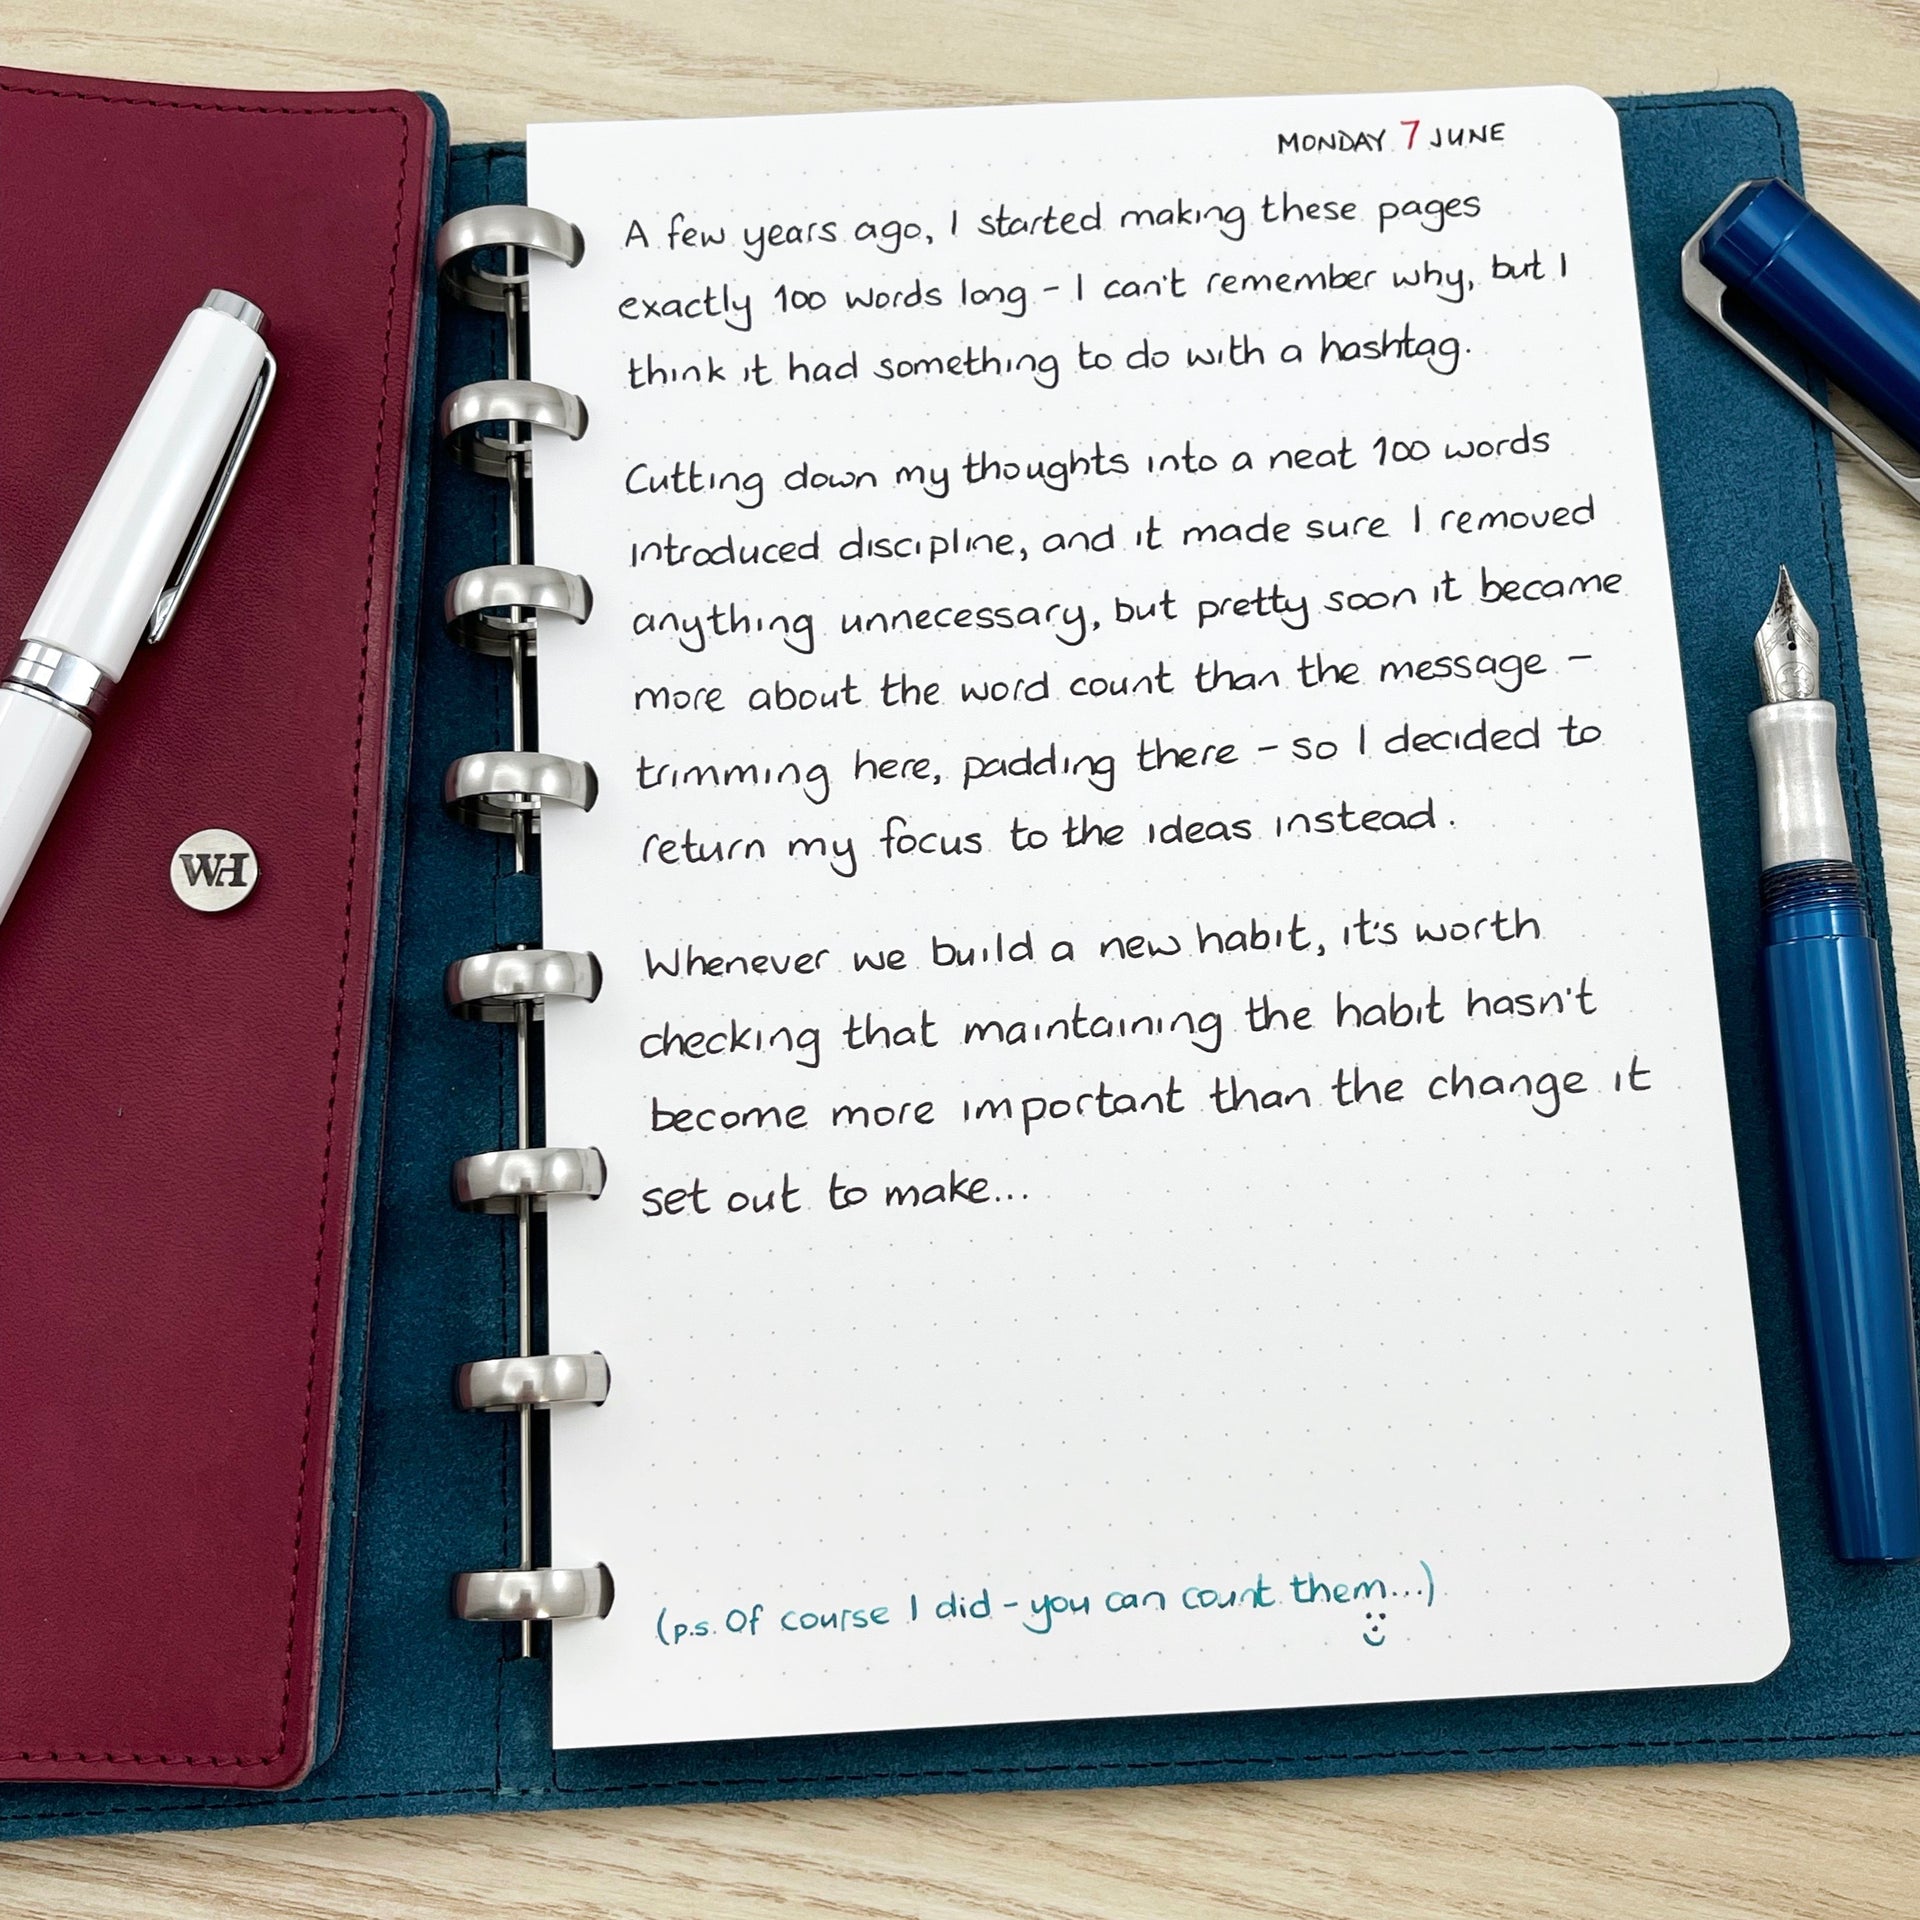 MONDAY 7 JUNE
A few years ago, I started making these pages
exactly 100 words long - I can't remember why, but I
think it had something to do with a hashtag.
Cutting down my thoughts into a neat 100 words
introduced discipline, and it made sure I removed
anything unnecessary, but pretty soon it became
more about the word count than the message -
trimming here, padding there - so I decided to
return my focus to the ideas instead.
Whenever we build a new habit, it's worth
checking that maintaining the habit hasn't
become more important than the change it
set out to make...
(p.s. Of course I did - you can count them...)
WH